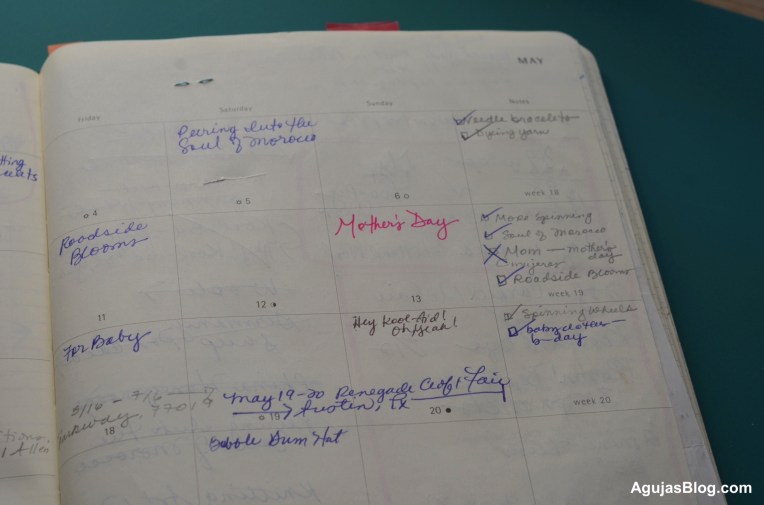 MAY
Friday
Saturday
Sunday
Notes
Peering Into the
Soul of Morocco
needle bracelets
Dyeing yarn
4
5
6
week 18
Roadside
Blooms
Mother's Day
More Spinning
Soul of Morocco
Mom — mother's
day
Roadside Blooms
11
12
13
week 19
For Baby
Hey Kool-Aid!
Oh Yeah!
Spinning Wheels
baby clothes
b-day
5/16 - 7/6
Parkway, 77019
May 19-20 Renegade Craft Fair
Austin, TX
18
19
20
week 20
Gum Hat
AgujasBlog.com